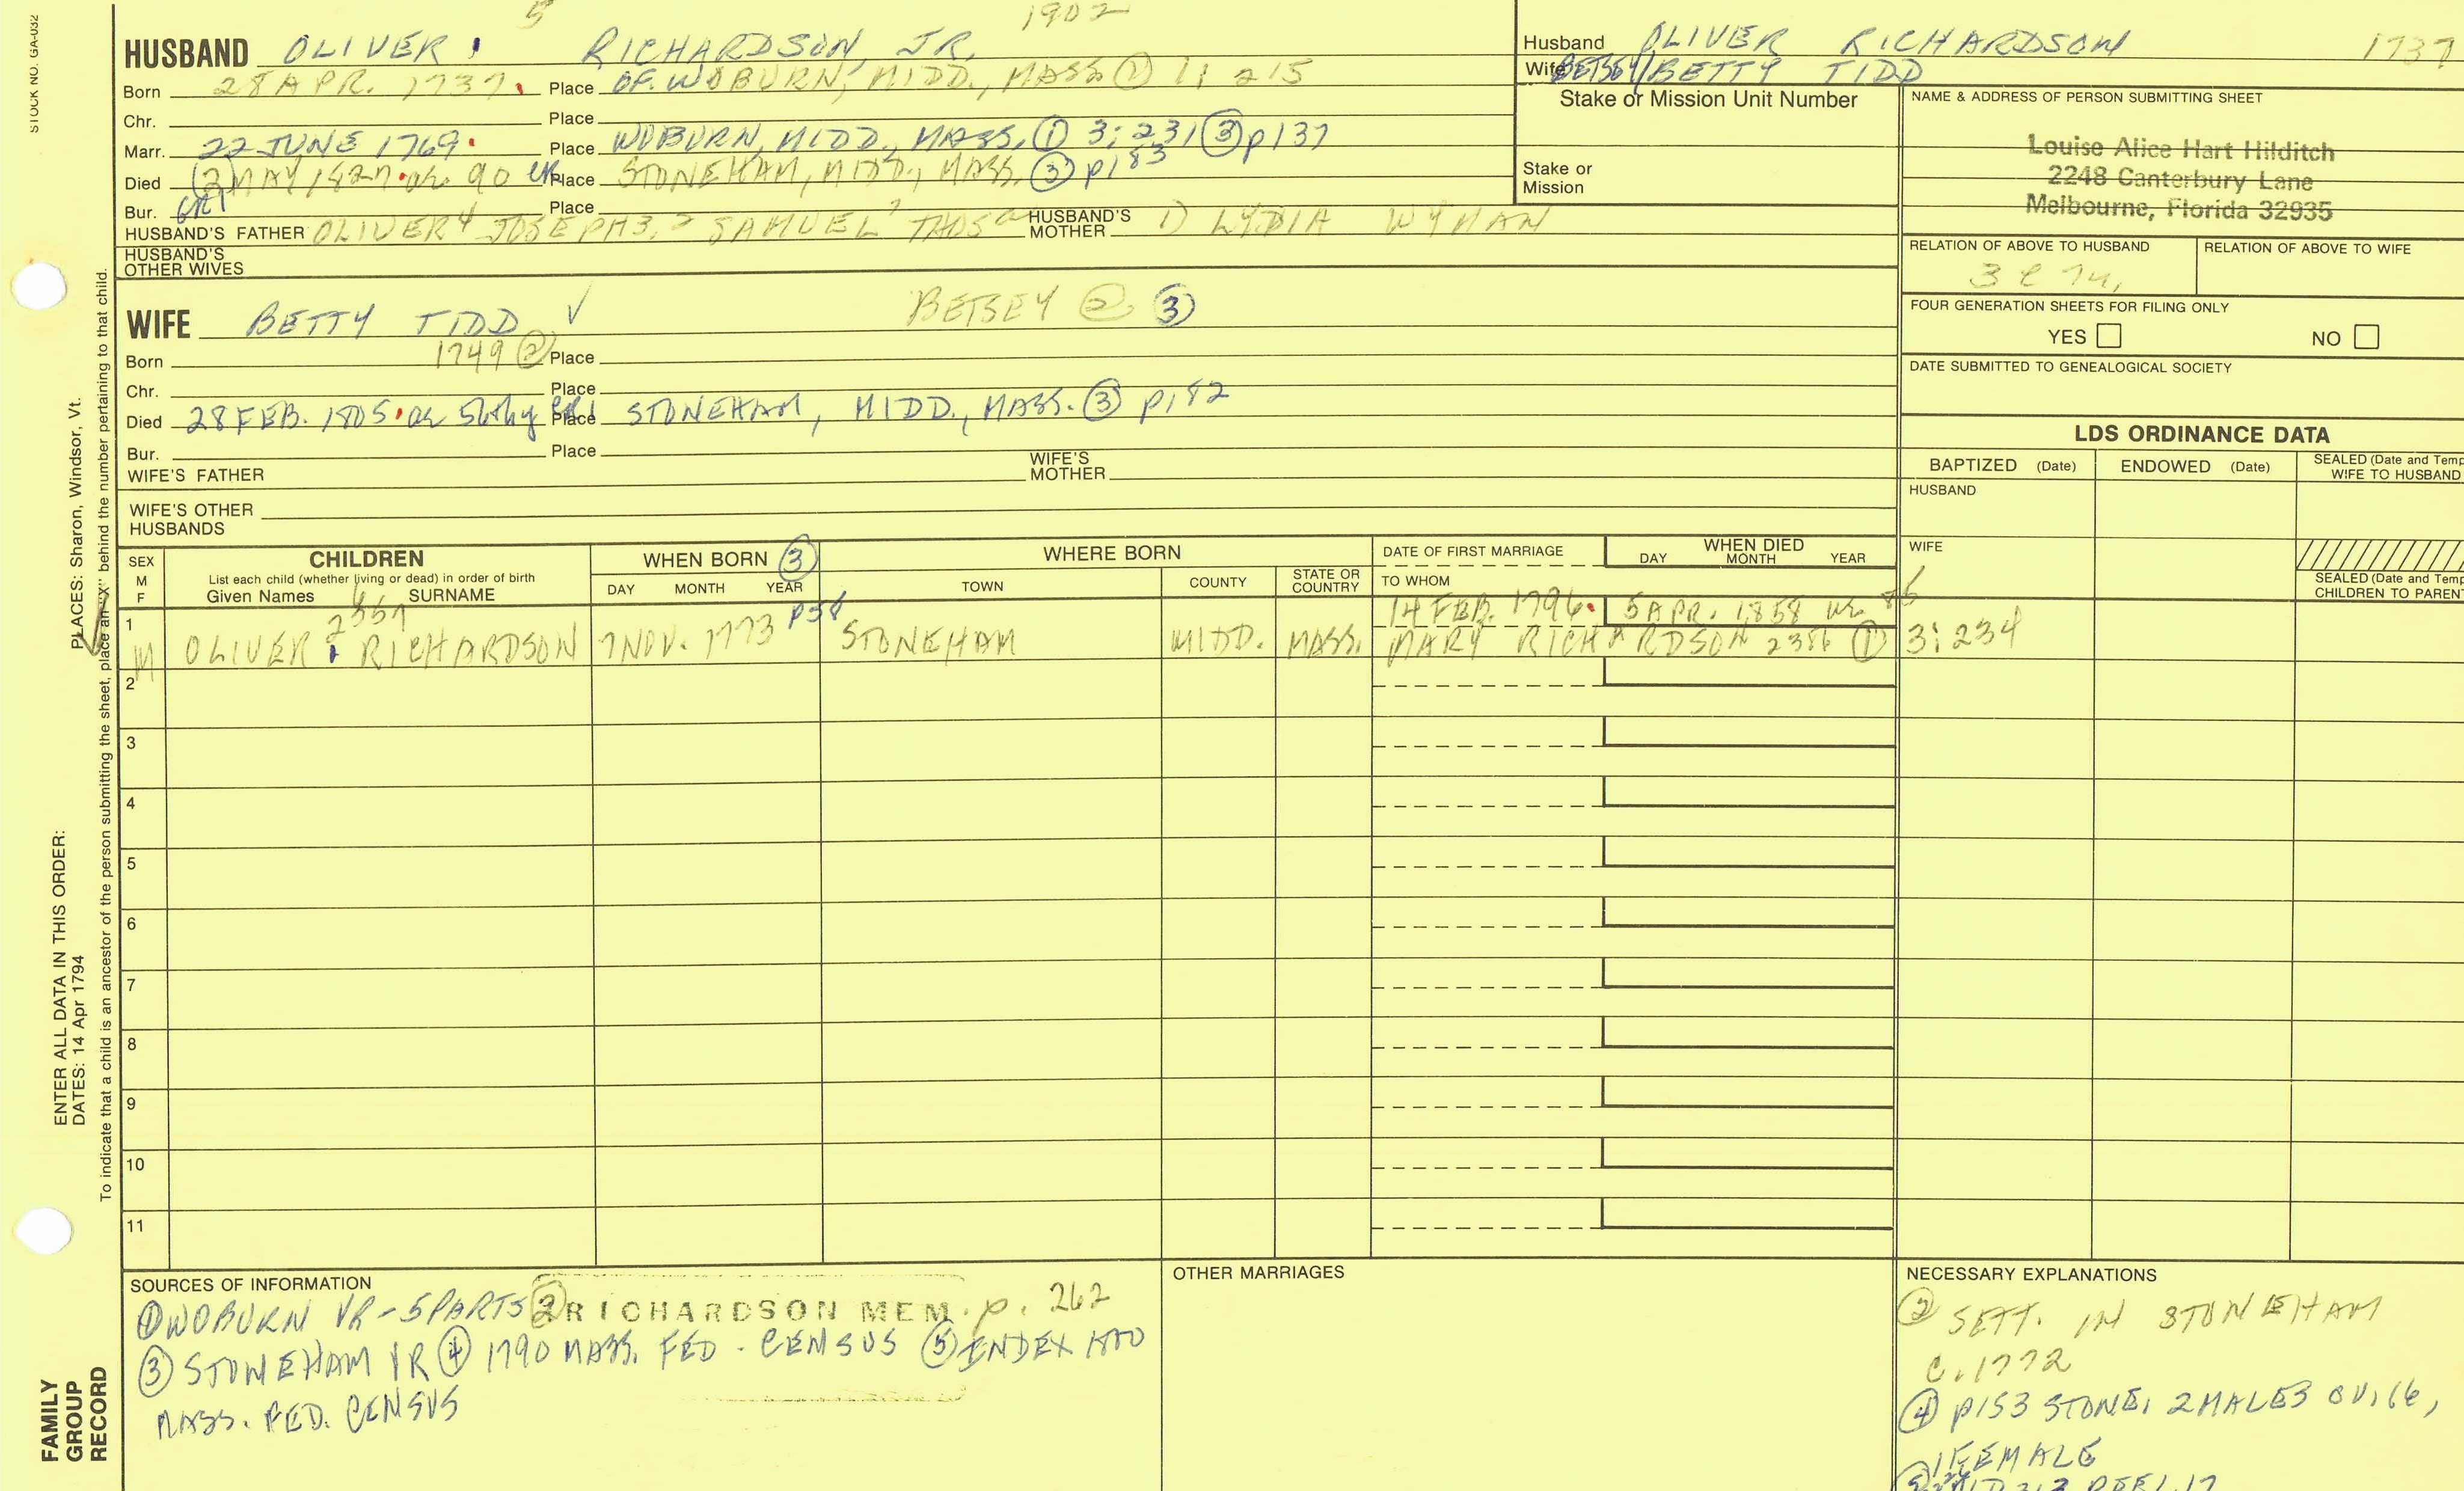 5 1902
HUSBAND OLIVER RICHARDSON, JR.
Born 28 APR. 1737. Place OF WOBURN, MIDD., MASS ① 1; 215
Chr. Place
Marr. 22 JUNE 1769. Place WOBURN, MIDD., MASS. ① 3; 231 ③ p137
Died MAY 1827. ae 90 Place STONEHAM, MIDD., MASS. ③ p183
Bur. GR1 Place
HUSBAND'S FATHER OLIVER 4 JOSEPH 3, 2 SAMUEL THOS HUSBAND'S MOTHER LYDIA WYMAN
HUSBAND'S OTHER WIVES
WIFE BETTY TIDD ✓ BETSEY ② ③
Born 1749 ② Place
Chr. Place
Died 28 FEB. 1805. ae 56thy GR1 Place STONEHAM, MIDD., MASS. ③ p182
Bur. Place
WIFE'S FATHER WIFE'S MOTHER
WIFE'S OTHER HUSBANDS
Husband OLIVER RICHARDSON 1737
Wife BETSEY/BETTY TIDD
Stake or Mission Unit Number
Stake or Mission
NAME & ADDRESS OF PERSON SUBMITTING SHEET
Louise Alice Hart Hilditch
2248 Canterbury Lane
Melbourne, Florida 32935
RELATION OF ABOVE TO HUSBAND RELATION OF ABOVE TO WIFE
FOUR GENERATION SHEETS FOR FILING ONLY
YES NO
DATE SUBMITTED TO GENEALOGICAL SOCIETY
LDS ORDINANCE DATA
BAPTIZED (Date) ENDOWED (Date) SEALED (Date and Temp
WIFE TO HUSBAND
HUSBAND
WIFE
SEALED (Date and Temp
CHILDREN TO PAREN
SEX M F
CHILDREN
List each child (whether living or dead) in order of birth
Given Names SURNAME
WHEN BORN ③
DAY MONTH YEAR
WHERE BORN
TOWN COUNTY STATE OR COUNTRY
DATE OF FIRST MARRIAGE
TO WHOM
WHEN DIED
DAY MONTH YEAR
6 2357 p58 14 FEB. 1796. 5 APR. 1858 ae 85
1 M OLIVER RICHARDSON 7 NOV. 1773 STONEHAM MIDD. MASS. MARY RICHARDSON 2386 ① 3; 234
2
3
4
5
6
7
8
9
10
11
SOURCES OF INFORMATION
① WOBURN VR-5 PARTS ② RICHARDSON MEM. p. 262
③ STONEHAM VR ④ 1790 MASS. FED. CENSUS ⑤ INDEX 1800
MASS. FED. CENSUS
OTHER MARRIAGES
NECESSARY EXPLANATIONS
② SETT. IN STONEHAM
C. 1772
④ p153 STONE, 2 MALES OV. 16,
1 FEMALE
STOCK NO. GA-032
PLACES: Sharon, Windsor, Vt.
ENTER ALL DATA IN THIS ORDER:
DATES: 14 Apr 1794
To indicate that a child is an ancestor of the person submitting the sheet, place an "X" behind the number pertaining to that child.
FAMILY
GROUP
RECORD